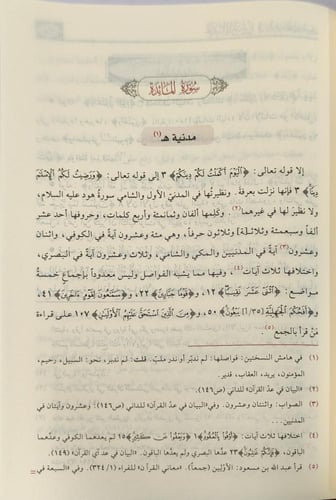 سُورَةُ المَائِدَة
مدنية هـ (١)
إلا قوله تعالى: ﴿ٱلْيَوْمَ أَكْمَلْتُ لَكُمْ دِينَكُمْ﴾ ٣ إلى قوله تعالى: ﴿وَرَضِيتُ لَكُمُ ٱلْإِسْلَٰمَ
دِينًا﴾ ٣ فإنها نزلت بعرفة. ونظيرتها في المدني الأول والشامي سورة هود عليه السلام،
ولا نظير لها في غيرهما(٢). وكلمها ألفان وثمانمئة وأربع كلمات، وحروفها أحد عشر
ألفاً وسبعمئة وثلاثـ[ـة] وثلاثون حرفاً، وهي مئة وعشرون آية في الكوفي، واثنان
وعشرون(٣) آية في المدنيين والمكي والشامي، وثلاث وعشرون آية في البصري،
واختلافها ثلاث آيات(٤). وفيها مما يشبه الفواصل وليس معدوداً بإجماع خمسة
مواضع: ﴿ٱثْنَيْ عَشَرَ نَقِيبًا﴾ ١٢، و﴿قَوْمًا جَبَّارِينَ﴾ ٢٢، و﴿سَمَّٰعُونَ لِقَوْمٍ ءَاخَرِينَ﴾ ٤١،
و﴿أَفَحُكْمَ ٱلْجَٰهِلِيَّةِ [١/٣٥] يَبْغُونَ﴾ ٥٠، و﴿مِنَ ٱلَّذِينَ ٱسْتَحَقَّ عَلَيْهِمُ ٱلْأَوْلَيَٰنِ﴾ ١٠٧ على قراءة
مَنْ قرأ بالجمع(٥).
(١) في هامش النسختين: فواصلها: لم ندبّر أو ندر ملب. قلت: لم ندبر، نحو: السبيل، رحيم،
المؤمنون، يريد، العقاب، قدير.
(٢) «البيان في عدّ القرآن» للداني (ص١٤٦).
(٣) الصواب: واثنتان وعشرون. وفي «البيان في عدّ القرآن» للداني (ص١٤٦): وعشرون وآيتان في
المدنيين...
(٤) اختلافها ثلاث آيات: ﴿أَوْفُوا۟ بِٱلْعُقُودِ﴾ ١ ﴿وَيَعْفُوا۟ عَن كَثِيرٍ﴾ ١٥ لم يعدهما الكوفي وعدّهما
الباقون، ﴿فَإِنَّكُمْ غَٰلِبُونَ﴾ ٢٣ عدّها البصري ولم يعدها الباقون. «البيان في عد آي القرآن» (١٤٩).
(٥) قرأ عبد الله بن مسعود: الأوّلين (جمعاً). «معاني القرآن» للفراء (١/ ٣٢٤). وفي «السبعة في